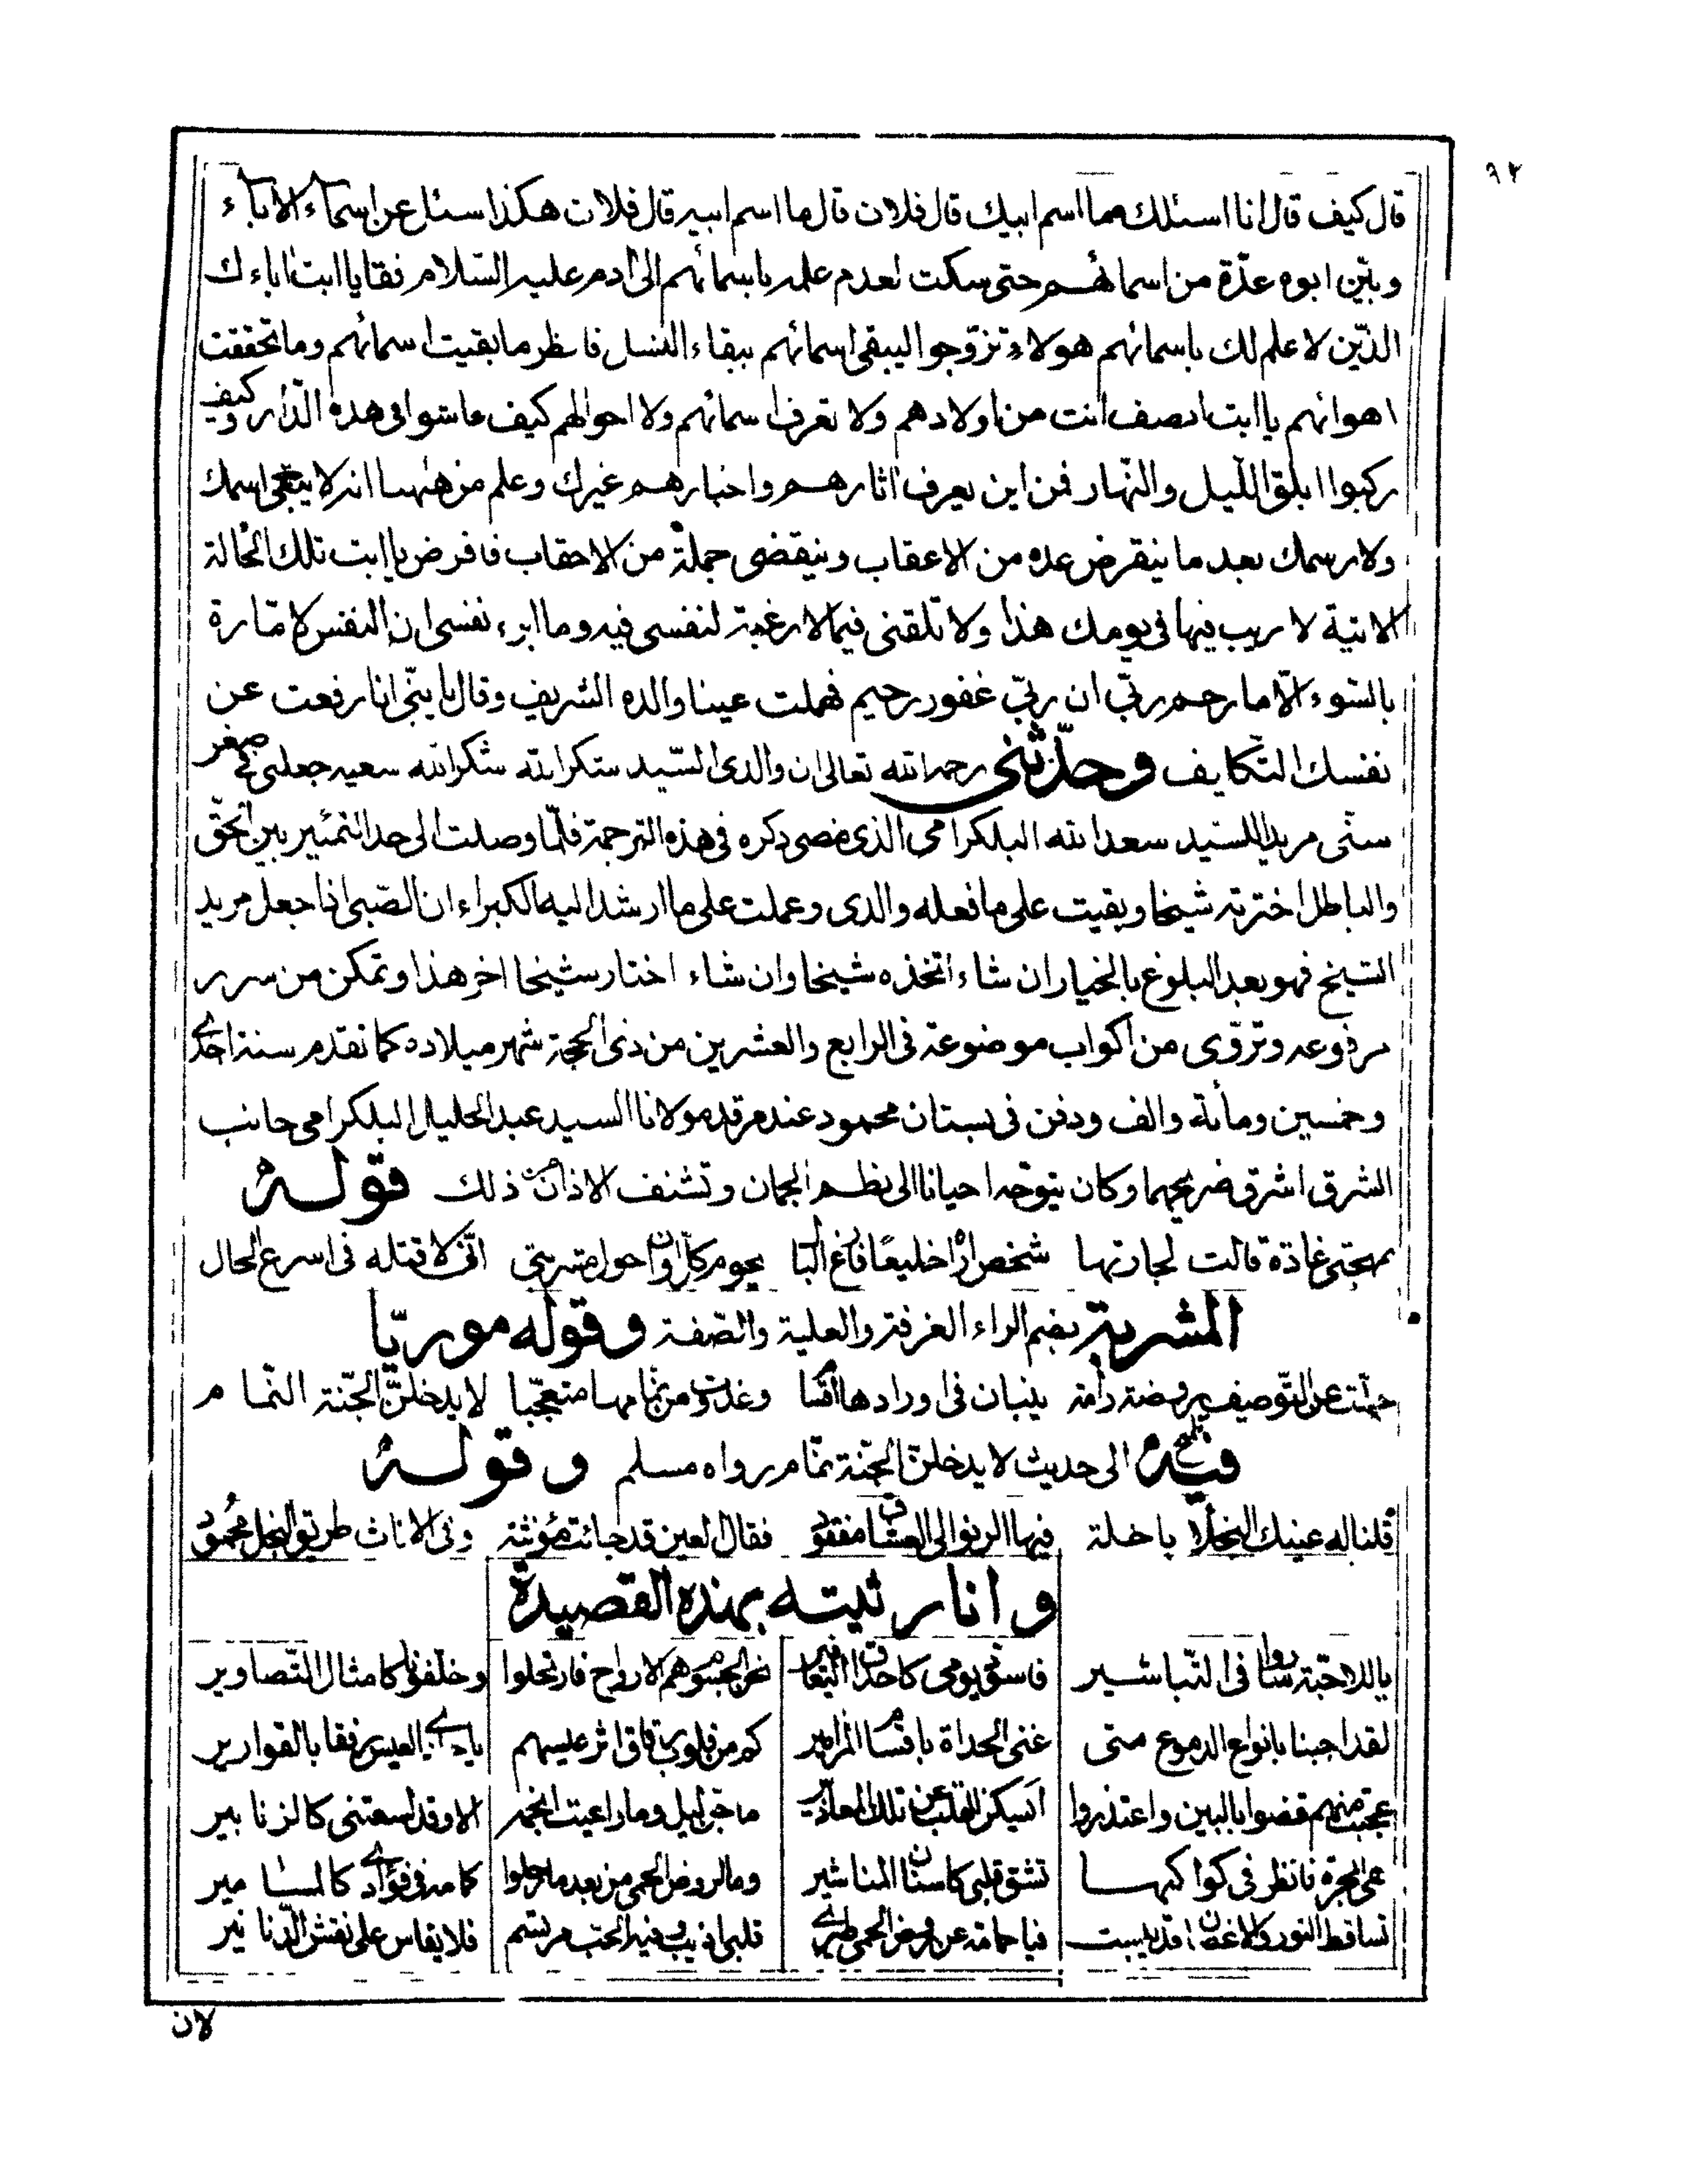 ٩٢
قال كيف قال انا اسئلك ما اسم ابيك قال فلان قال ما اسم ابيه قال فلان هكذا سئل عن اسماء الاباء
وبيّن ابوه عدّة من اسمائهم حتى سكت لعدم علمه باسمائهم الى ادم عليه السّلام فقال يا ابت اباءك
الذّين لا علم لك باسمائهم هولاء تزوّجوا ليبقى اسمائهم ببقاء النسل فانظر ما بقيت اسمائهم وما تحققت
اهوائهم يا ابت انصف انت من اولادهم ولا تعرف اسمائهم ولا احوالهم كيف عاشوا فى هذه الدّار وكيف
ركبوا ابلق اللّيل والنّهار فمن اين يعرف اثارهم واخبارهم غيرك وعلم من ههنا انه لا يبقى اسمك
ولا رسمك بعد ما ينقرض عده من الاعقاب وينقضى جملة من الاحقاب فافرض يا ابت تلك الحالة
الاتية لا ريب فيها فى يومك هذا ولا تلقنى فيما لا رغبة لنفسى فيه وما ابرء نفسى ان النفس لامّارة
بالسّوء الّا ما رحم ربّى ان ربّى غفور رحيم فهملت عينا والده الشريف وقال يا بنّى انا رفعت عن
نفسك التكايف وحدّثنى رحمه الله تعالى ان والدى السّيد شكر الله شكر الله سعيه جعلنى فى صغر
سنّى مريد السيد سعد الله البلكرامى الذى مضى ذكره فى هذه الترجمة فلّما وصلت الى حد التميّز بين الحقّ
والباطل اخترته شيخا وبقيت على ما فعله والدى وعملت على ما ارشد اليه الكبراء ان الصّبى اذا جعل مريد
الشيخ فهو بعد البلوغ بالخيار ان شاء اتخذه شيخا وان شاء اختار شيخا اخر هذا وتمكن من سرر
مرفوعه وتروّى من اكواب موضوعة فى الرابع والعشرين من ذى الحجة شهر ميلاده كما تقدم سنة احدى
وخمسين ومأئة والف ودفن فى بستان محمود عند مرقد مولانا السيد عبد الجليل البلكرامى جانب
الشرق اشرق ضريحهما وكان يتوجه احيانا الى نظم الجمان وتشنف الاذان من ذلك قوله
بمهجتى غادة قالت لجارتها شخص اراه خليعًا فارغ البال يحوم كل اوان حول مشربتى انى لاقتله فى اسرع الحال
المشربة بضم الراء الغرفة والعلية والصّفة وقوله مورّيا
جلّت عن التوصيف روضة رامة ينبان فى اورادها اقسام وغدوت من نمامها متعجّبا لا يدخلنّ الجّنة النّمام
فيه تلميح الى حديث لا يدخلنّ الجّنة نمّام رواه مسلم وقوله
قلنا له عينك النجلاء باخلة فيها الرنو الى العشاق مفقود فقال لعين قد جائت مؤنثة وفى الاناث طريق البخل محمود
وانا رثيته بهذه القصيدة
يا للاحبّة ساروا فى التّباشير فاسقوا يومى كاحداق اليعافير نحن الجسوم هم الارواح فارتحلوا وخلّفونا كامثال التّصاوير
لقد اجبنا بانواع الدموع متى غنى الحداة باقسام المزامير كم من قلوب رقاق اثر عيسهم يا حادى العيس رفقا بالقوارير
عجبت منهم قضوا بالبين واعتذروا ايسكن القلب عن تلك المعاذير ما جنّ ليل وما راعيت انجمه الا وقد لسعتنى كالزنابير
على المجرة فانظر فى كواكبها تشق قلبى كاسنان المناشير وما لروض الحمى من بعد ما رحلوا كامه فى فؤادى كالمسامير
تساقط النور والاغصان قد يبست فيا حمامة عن روض الحمى طيرى قلبى اذيب وفيه الحب مرتسم فلا يقاس على نقش الدّنانير
لان